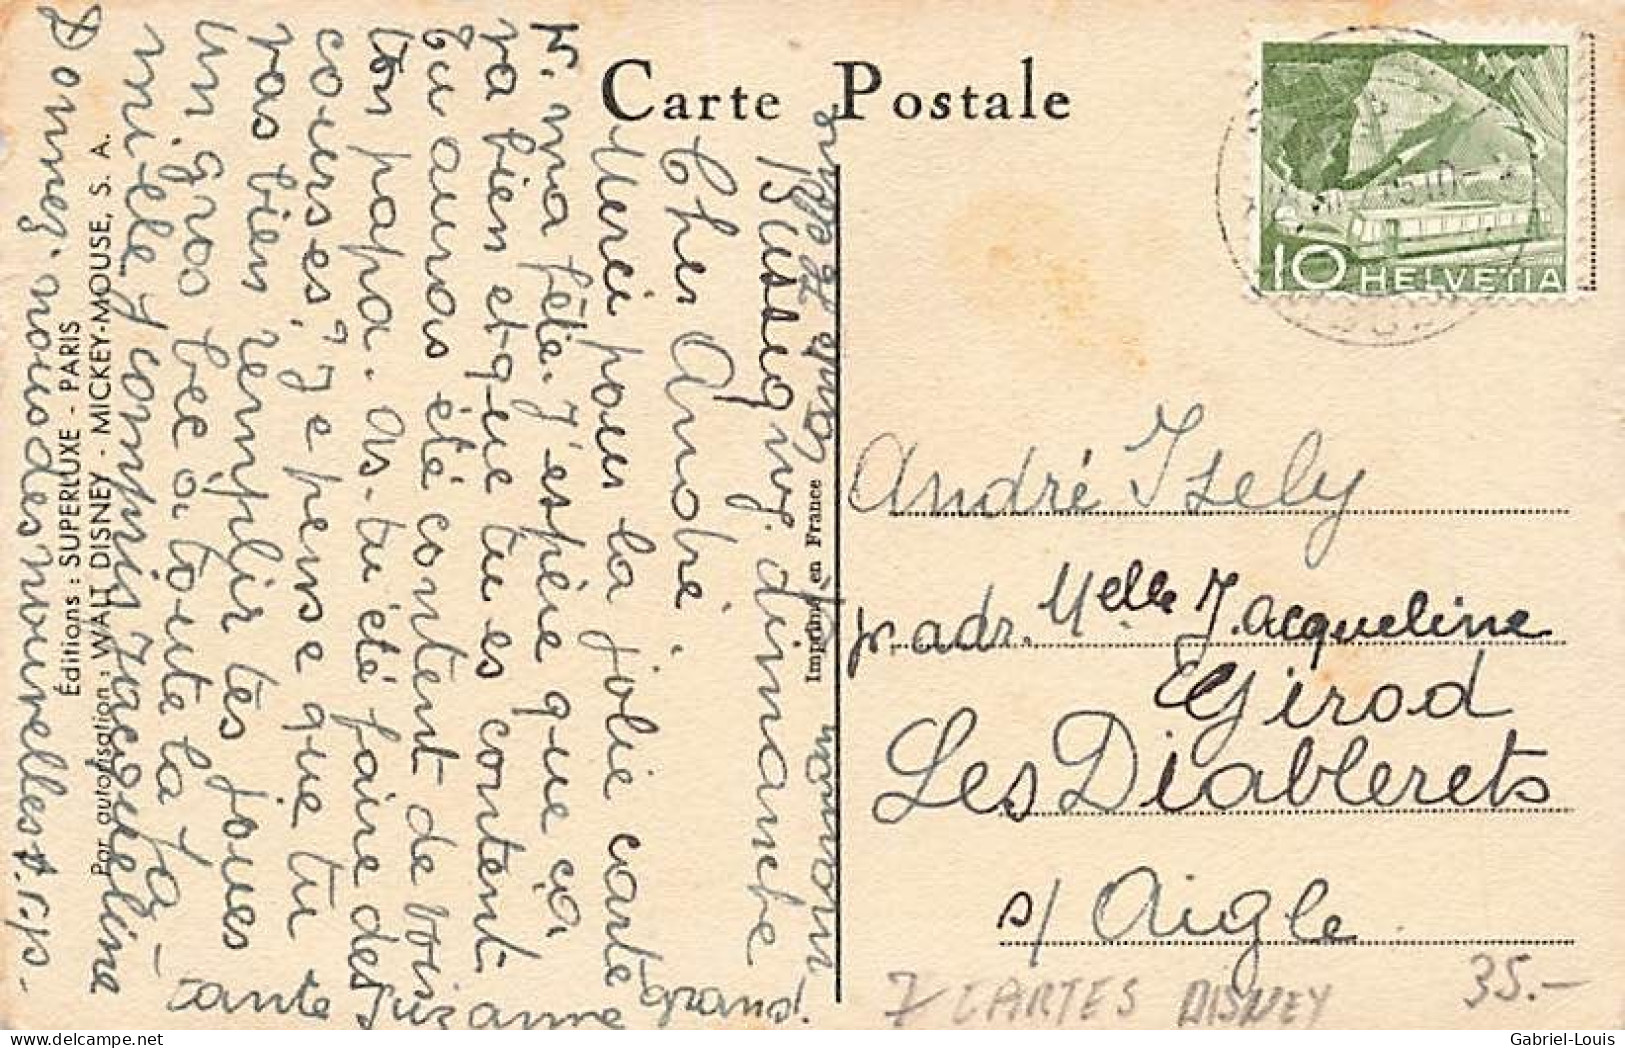 Carte Postale
10 HELVETIA
dimanche
Cher André.
Merci pour la jolie carte
p. ma fête. J'espère que ça
va bien et que tu es content.
Tu auras été content de voir
ton papa. As-tu été faire des
courses? Je pense que tu
vas bien remplir tes joues
Un gros bec à toute la fa-
mille y compris Jacqueline
Donnez-nous des nouvelles s.v.p.
Tante Suzanne
grand maman
Éditions : SUPERLUXE - PARIS
Par autorisation : WALT DISNEY - MICKEY-MOUSE, S. A.
Imprimé en France
André Isely
p. adr. Melle Jacqueline
Girod
Les Diablerets
s/ Aigle
7 CARTES DISNEY
35.-
Gabriel-Louis